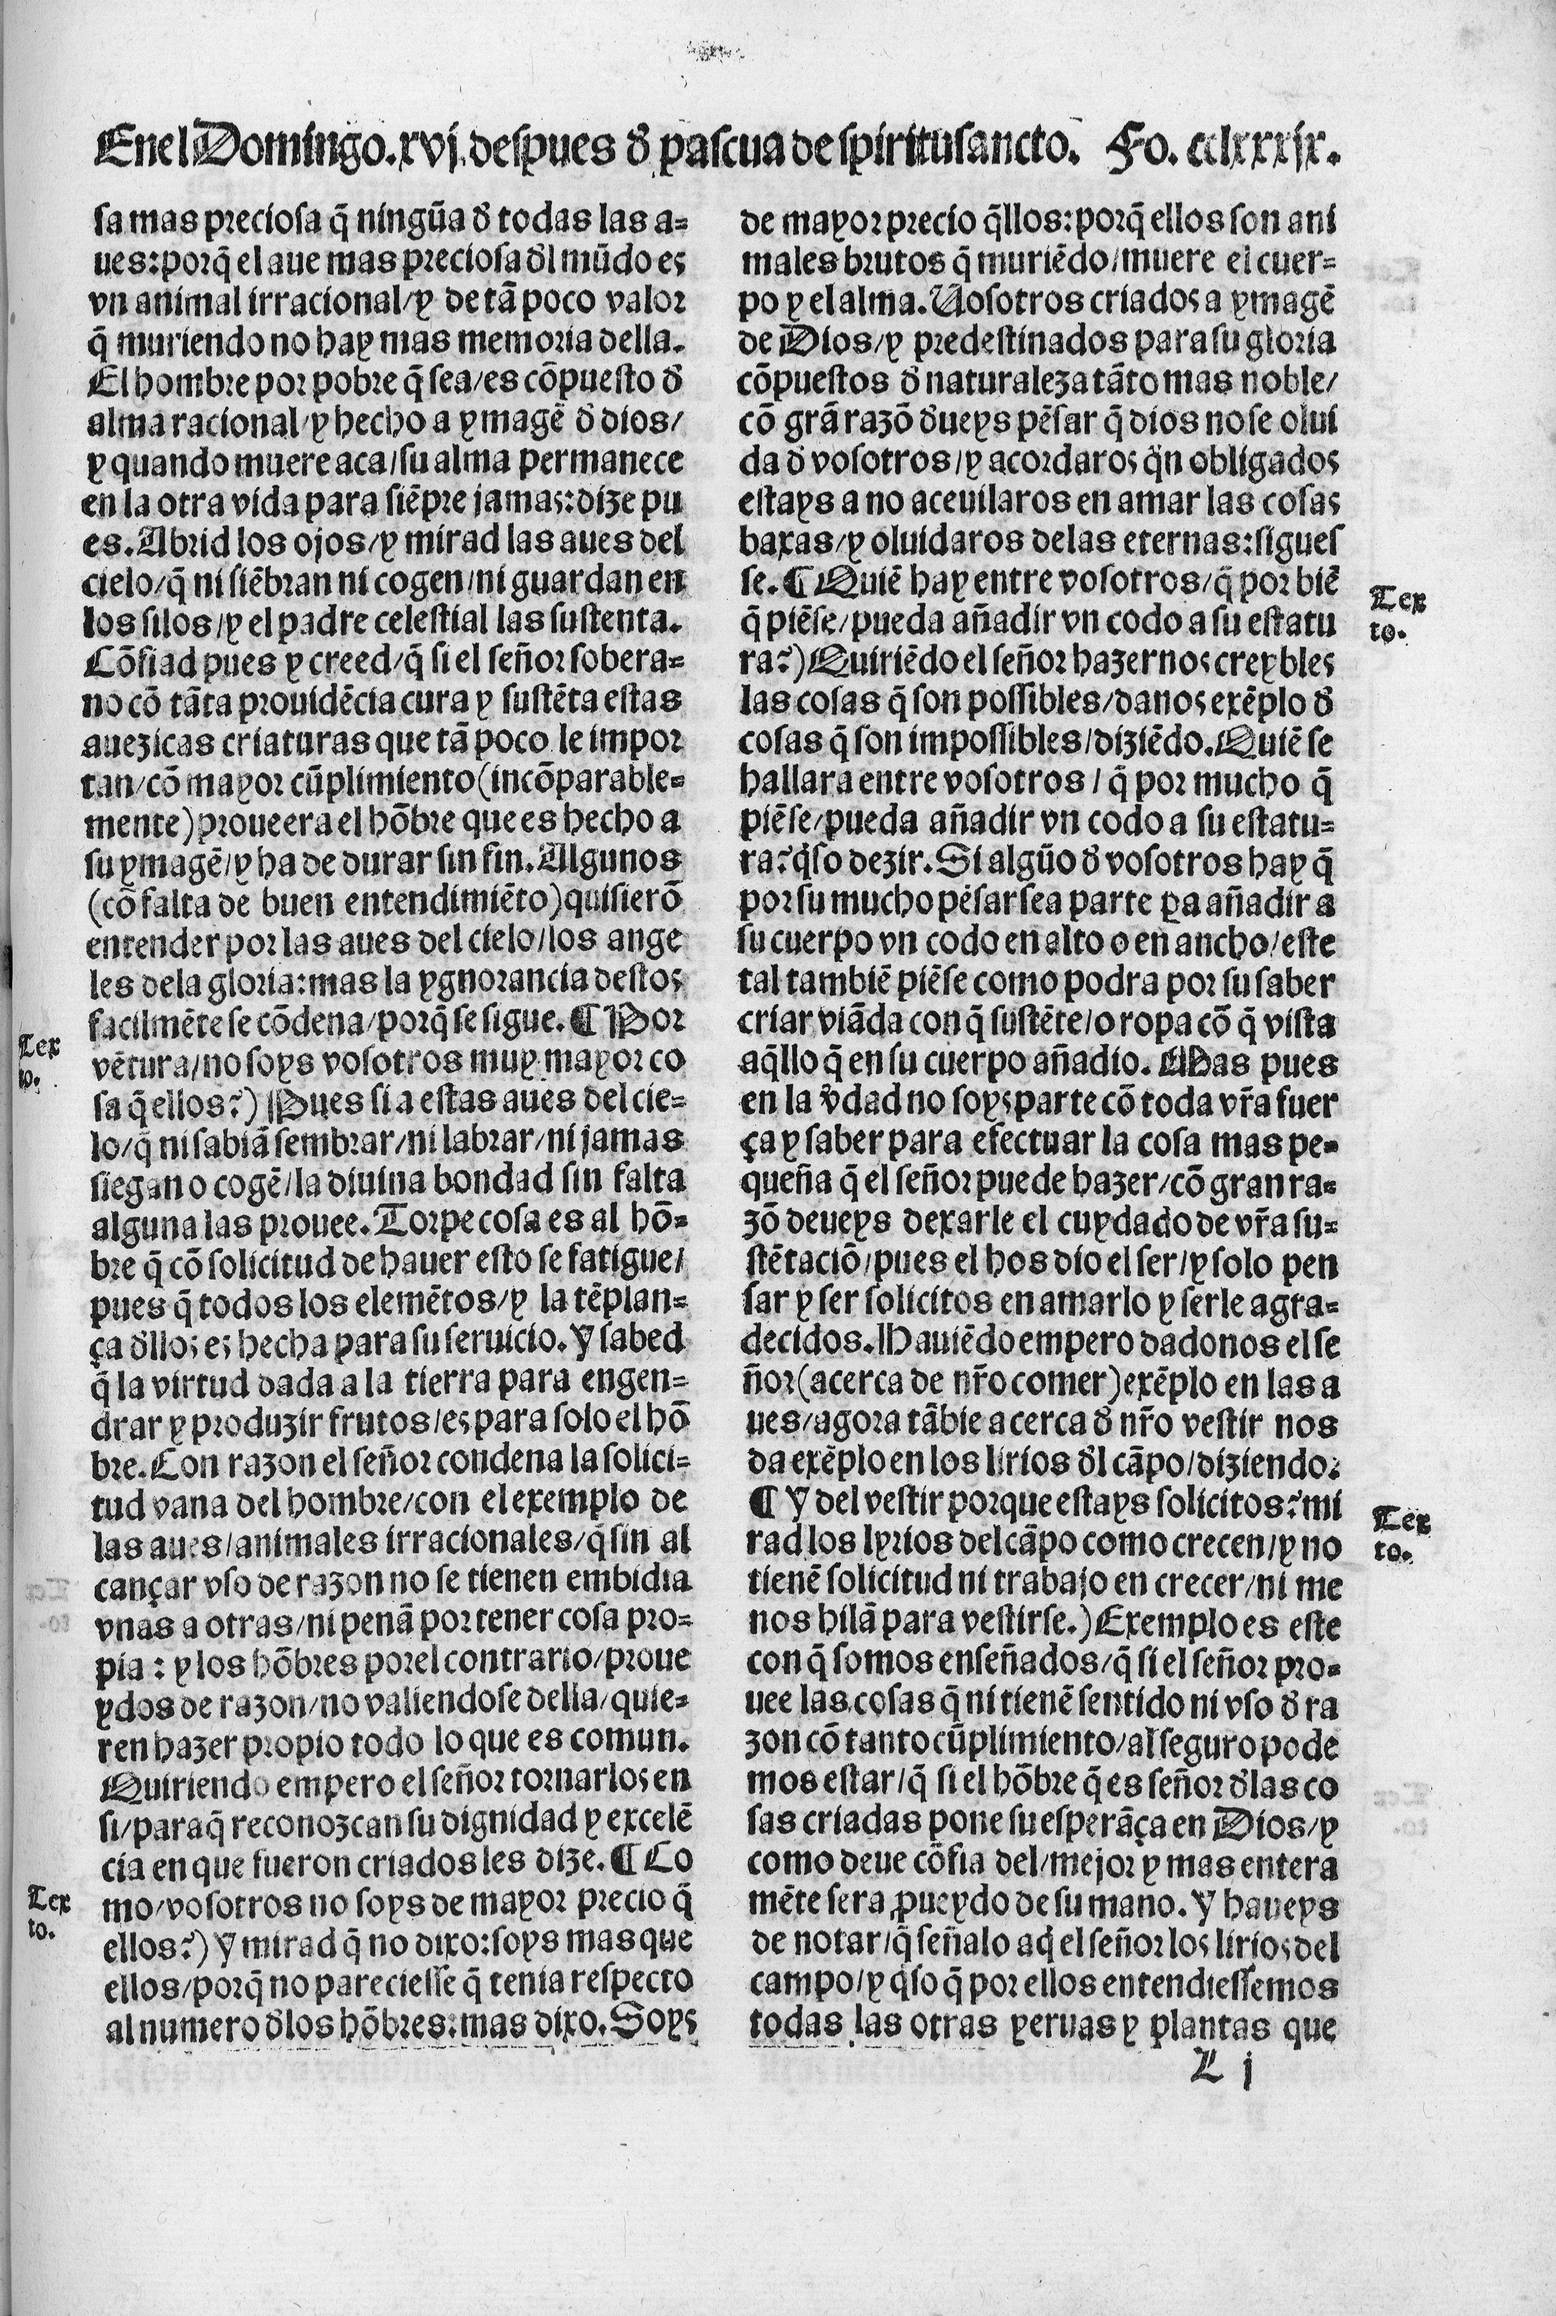 En el Domingo. xvj. despues đ pascua de spiritusancto. Fo. cclxxxix.
sa mas preciosa q̃ ningũa đ todas las a=
ues: porq̃ el aue mas preciosa đl mũdo es
vn animal irracional/y de tã poco valor
q̃ muriendo no hay mas memoria della.
El hombre por pobre q̃ sea/es cõpuesto đ
alma racional/y hecho a ymagẽ đ dios/
y quando muere aca/su alma permanece
en la otra vida para siẽpre jamas: dize pu
es. Abrid los ojos/y mirad las aues del
cielo/q̃ ni siẽbran ni cogen/ni guardan en
los silos/y el padre celestial las sustenta.
Cõfiad pues y creed/q̃ si el señor sobera=
no cõ tãta prouidẽcia cura y sustẽta estas
auezicas criaturas que tã poco le impor
tan/cõ mayor cũplimiento (incõparable=
mente) proueera el hõbre que es hecho a
su ymagẽ/y ha de durar sin fin. Algunos
(cõ falta de buen entendimiẽto) quisierõ
entender por las aues del cielo/los ange
les dela gloria: mas la ygnorancia destos
facilmẽte se cõdena/porq̃ se sigue. ¶ Por
Tex
to.
vẽtura/no soys vosotros muy mayor co
sa q̃ ellos?) Pues si a estas aues del cie=
lo/q̃ ni sabiã sembrar/ni labrar/ni jamas
siegan o cogẽ/la diuina bondad sin falta
alguna las prouee. Torpe cosa es al hõ=
bre q̃ cõ solicitud de hauer esto se fatigue/
pues q̃ todos los elemẽtos/y la tẽplan=
ça đllos es hecha para su seruicio. Y sabed
q̃ la virtud dada a la tierra para engen=
drar y produzir frutos/es para solo el hõ
bre. Con razon el señor condena la solici=
tud vana del hombre/con el exemplo de
las aues/animales irracionales/q̃ sin al
cançar vso de razon no se tienen embidia
vnas a otras/ni penã por tener cosa pro=
pia: y los hõbres por el contrario/proue
ydos de razon/no valiendose della/quie=
ren hazer propio todo lo que es comun.
Quiriendo empero el señor tornarlos en
si/para q̃ reconozcan su dignidad y excelẽ
cia en que fueron criados les dize. ¶ Co
Tex
to.
mo/vosotros no soys de mayor precio q̃
ellos?) Y mirad q̃ no dixo: soys mas que
ellos/porq̃ no pareciesse q̃ tenia respecto
al numero đlos hõbres: mas dixo. Soys
de mayor precio q̃llos: porq̃ ellos son ani
males brutos q̃ muriẽdo/muere el cuer=
po y el alma. Vosotros criados a ymagẽ
de Dios/y predestinados para su gloria
cõpuestos đ naturaleza tãto mas noble/
cõ grã razõ đueys pẽsar q̃ dios no se olui
da đ vosotros/y acordaros q̃n obligados
estays a no aceuilaros en amar las cosas
baxas/y oluidaros delas eternas: sigues
se. ¶ Quiẽ hay entre vosotros/q̃ por biẽ
Tex
to.
q̃ piẽse/pueda añadir vn codo a su estatu
ra?) Quiriẽdo el señor hazernos creybles
las cosas q̃ son possibles/danos exẽplo đ
cosas q̃ son impossibles/diziẽdo. Quiẽ se
hallara entre vosotros/q̃ por mucho q̃
piẽse/pueda añadir vn codo a su estatu=
ra? q̃so dezir. Si algũo đ vosotros hay q̃
por su mucho pẽsar sea parte ꝑa añadir a
su cuerpo vn codo en alto o en ancho/este
tal tambiẽ piẽse como podra por su saber
criar viãda con q̃ sustẽte/o ropa cõ q̃ vista
aq̃llo q̃ en su cuerpo añadio. Mas pues
en la v̉dad no soys parte cõ toda vr̃a fuer
ça y saber para efectuar la cosa mas pe=
queña q̃ el señor puede hazer/cõ gran ra=
zõ deueys dexarle el cuydado de vr̃a su=
stẽtaciõ/pues el hos dio el ser/y solo pen
sar y ser solicitos en amarlo y serle agra=
decidos. Hauiẽdo empero dadonos el se
ñor (acerca de nr̃o comer) exẽplo en las a
ues/agora tãbie acerca đ nr̃o vestir nos
da exẽplo en los lirios đl cãpo/diziendo:
¶ Y del vestir porque estays solicitos? mi
Tex
to.
rad los lyrios del cãpo como crecen/y no
tienẽ solicitud ni trabajo en crecer/ni me
nos hilã para vestirse.) Exemplo es este
con q̃ somos enseñados/q̃ si el señor pro=
uee las cosas q̃ ni tienẽ sentido ni vso đ ra
zon cõ tanto cũplimiento/al seguro pode
mos estar/q̃ si el hõbre q̃ es señor đlas co
sas criadas pone su esperãça en Dios/y
como deue cõfia del/mejor y mas entera
mẽte sera ꝓueydo de su mano. Y haueys
de notar/q̃ señalo aq̃ el señor los lirios del
campo/y q̃so q̃ por ellos entendiessemos
todas las otras yeruas y plantas que
L j